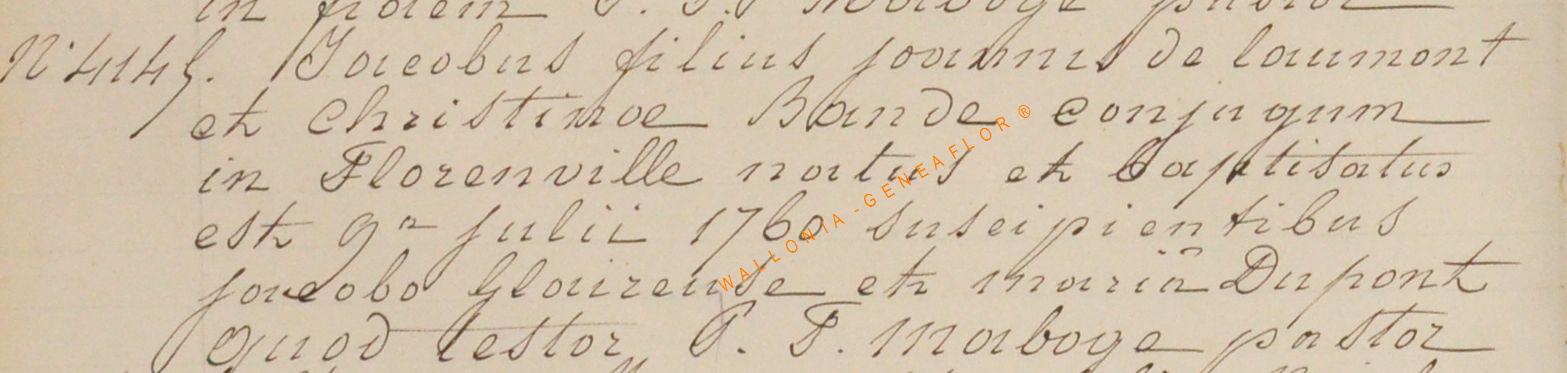 in fidem P. F. Maboge pastor
N° 4145. Jacobus filius joannis de laumont
et Christinae Bande conjugum
in Florenville natus et baptisatus
est 9a julii 1760 suscipientibus
jacobo Glaireuse et mariâ Dupont
quod testor, P. F. Maboge pastor
WALLONIA - GENEAFLOR ®